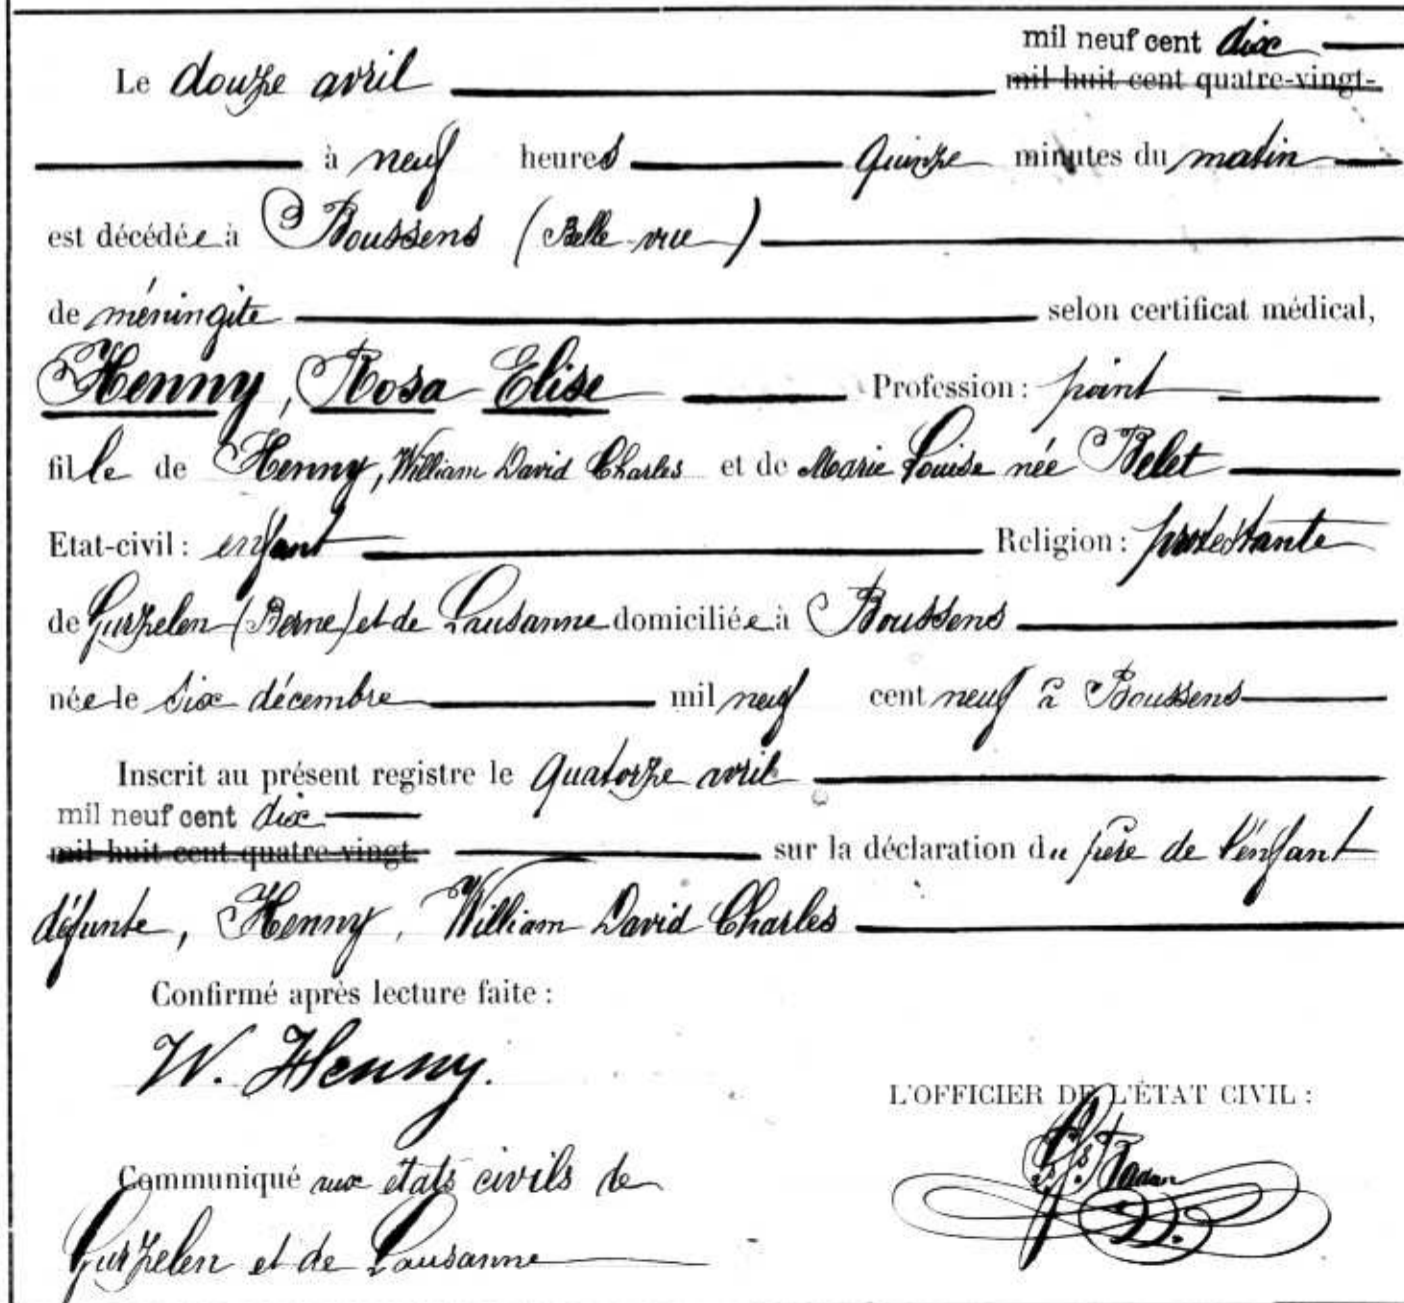 mil neuf cent dix
Le douze avril mil huit cent quatre-vingt-
à neuf heures quinze minutes du matin
est décédée à Boussens (Belle vue)
de méningite selon certificat médical,
Henny, Rosa Elise Profession : point
fille de Henny, William David Charles et de Marie Louise née Belet
Etat-civil : enfant Religion : protestante
de Gurzelen (Berne) et de Lausanne domiciliée à Boussens
née le six décembre mil neuf cent neuf à Boussens
Inscrit au présent registre le quatorze avril
mil neuf cent dix
mil huit cent quatre-vingt- sur la déclaration du père de l'enfant
défunte, Henny, William David Charles
Confirmé après lecture faite :
W. Henny.
L'OFFICIER DE L'ÉTAT CIVIL :
Communiqué aux états civils de
Gurzelen et de Lausanne